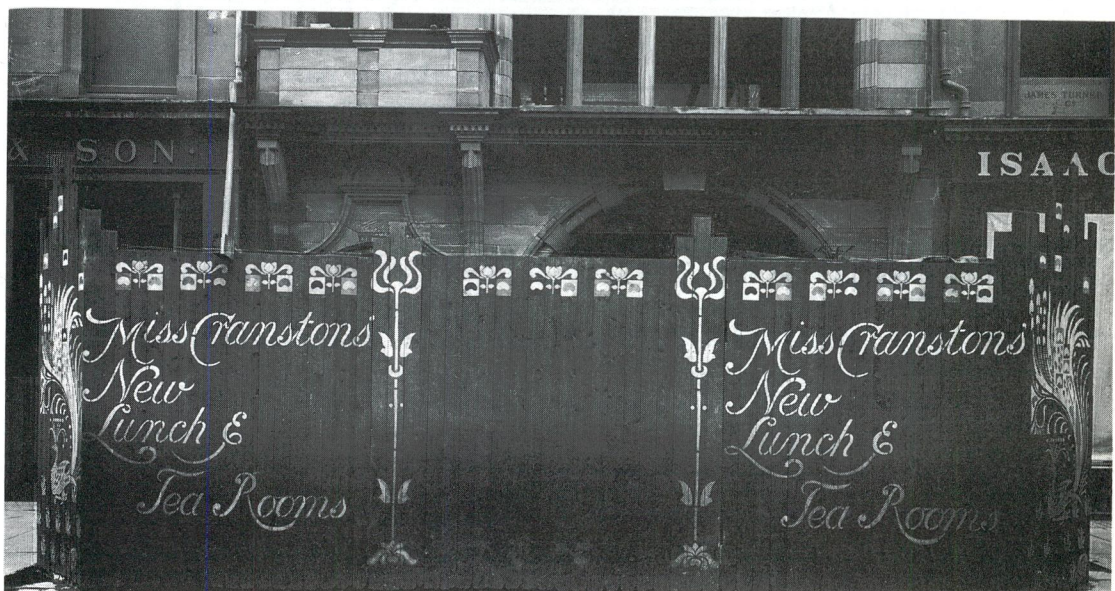 & SON.
JAMES TURNER
& CO
ISAAC
Miss Cranstons'
New
Lunch &
Tea Rooms
Miss Cranstons'
New
Lunch &
Tea Rooms